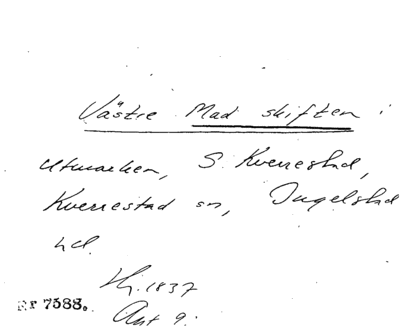 Västre Mad skiften i
utmarken, S. Kverrestad,
Kverrestad sn, Ingelstad
hd.
Hj. 1837
Nr 7588.
Akt 9.